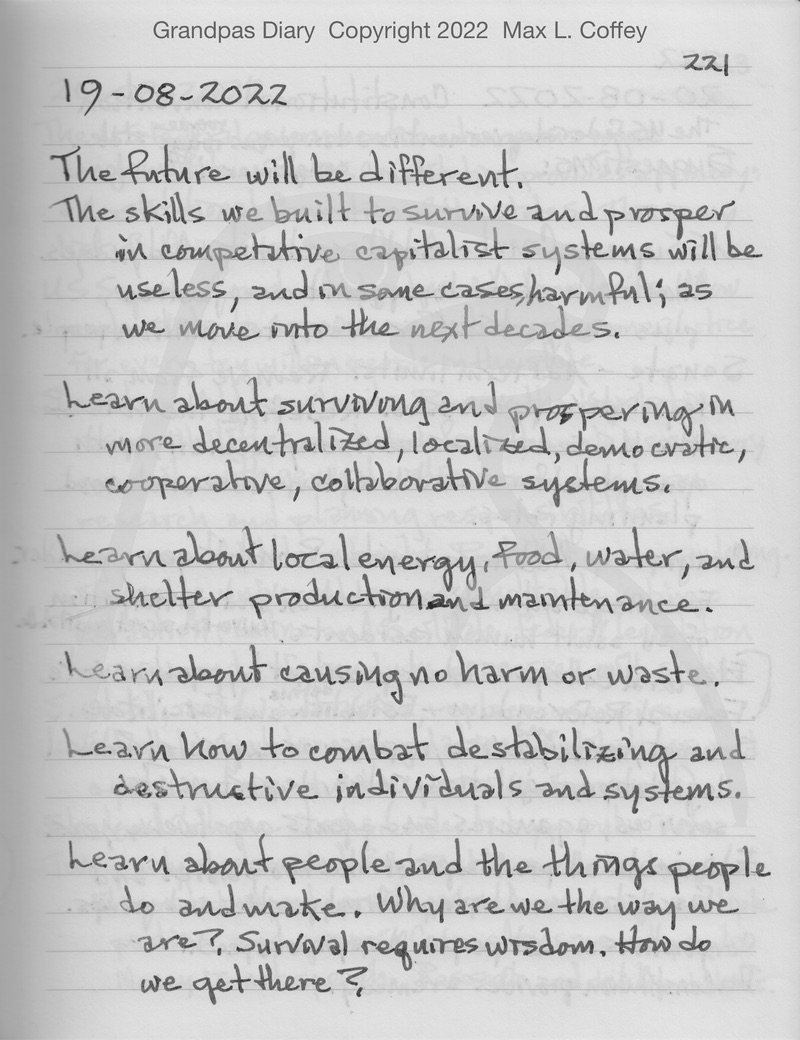 Grandpas Diary Copyright 2022 Max L. Coffey
221
19-08-2022
The future will be different.
The skills we built to survive and prosper
in competative capitalist systems will be
useless, and in some cases, harmful; as
we move into the next decades.
Learn about surviving and prospering in
more decentralized, localized, democratic,
cooperative, collaborative systems.
Learn about local energy, food, water, and
shelter production and maintenance.
Learn about causing no harm or waste.
Learn how to combat destabilizing and
destructive individuals and systems.
Learn about people and the things people
do and make. Why are we the way we
are? Survival requires wisdom. How do
we get there?